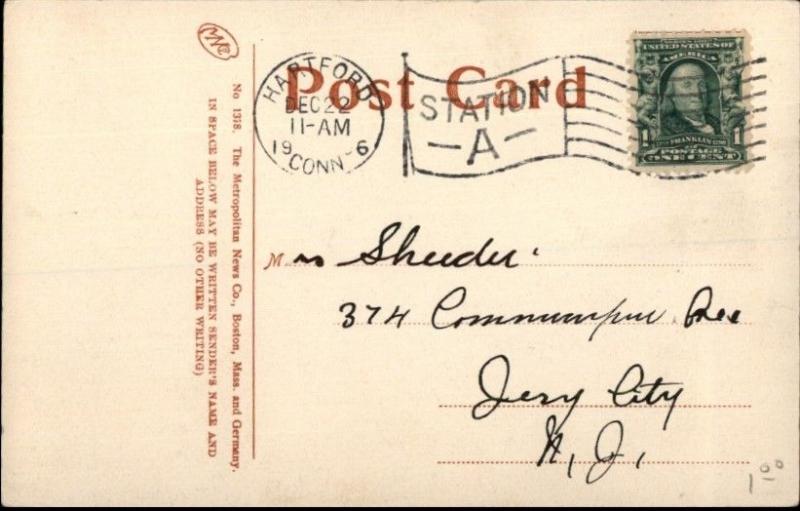 MNC
No 1318. The Metropolitan News Co., Boston, Mass. and Germany.
IN SPACE BELOW MAY BE WRITTEN SENDER'S NAME AND
ADDRESS (NO OTHER WRITING)
Post Card
HARTFORD
DEC 22
11-AM
19 6
CONN
STATION
-A-
UNITED STATES OF
AMERICA
1 FRANKLIN 1
POSTAGE
ONE CENT
Mrs Sheeder
374 Communipaw Ave
Jersy City
N. J.
1 00